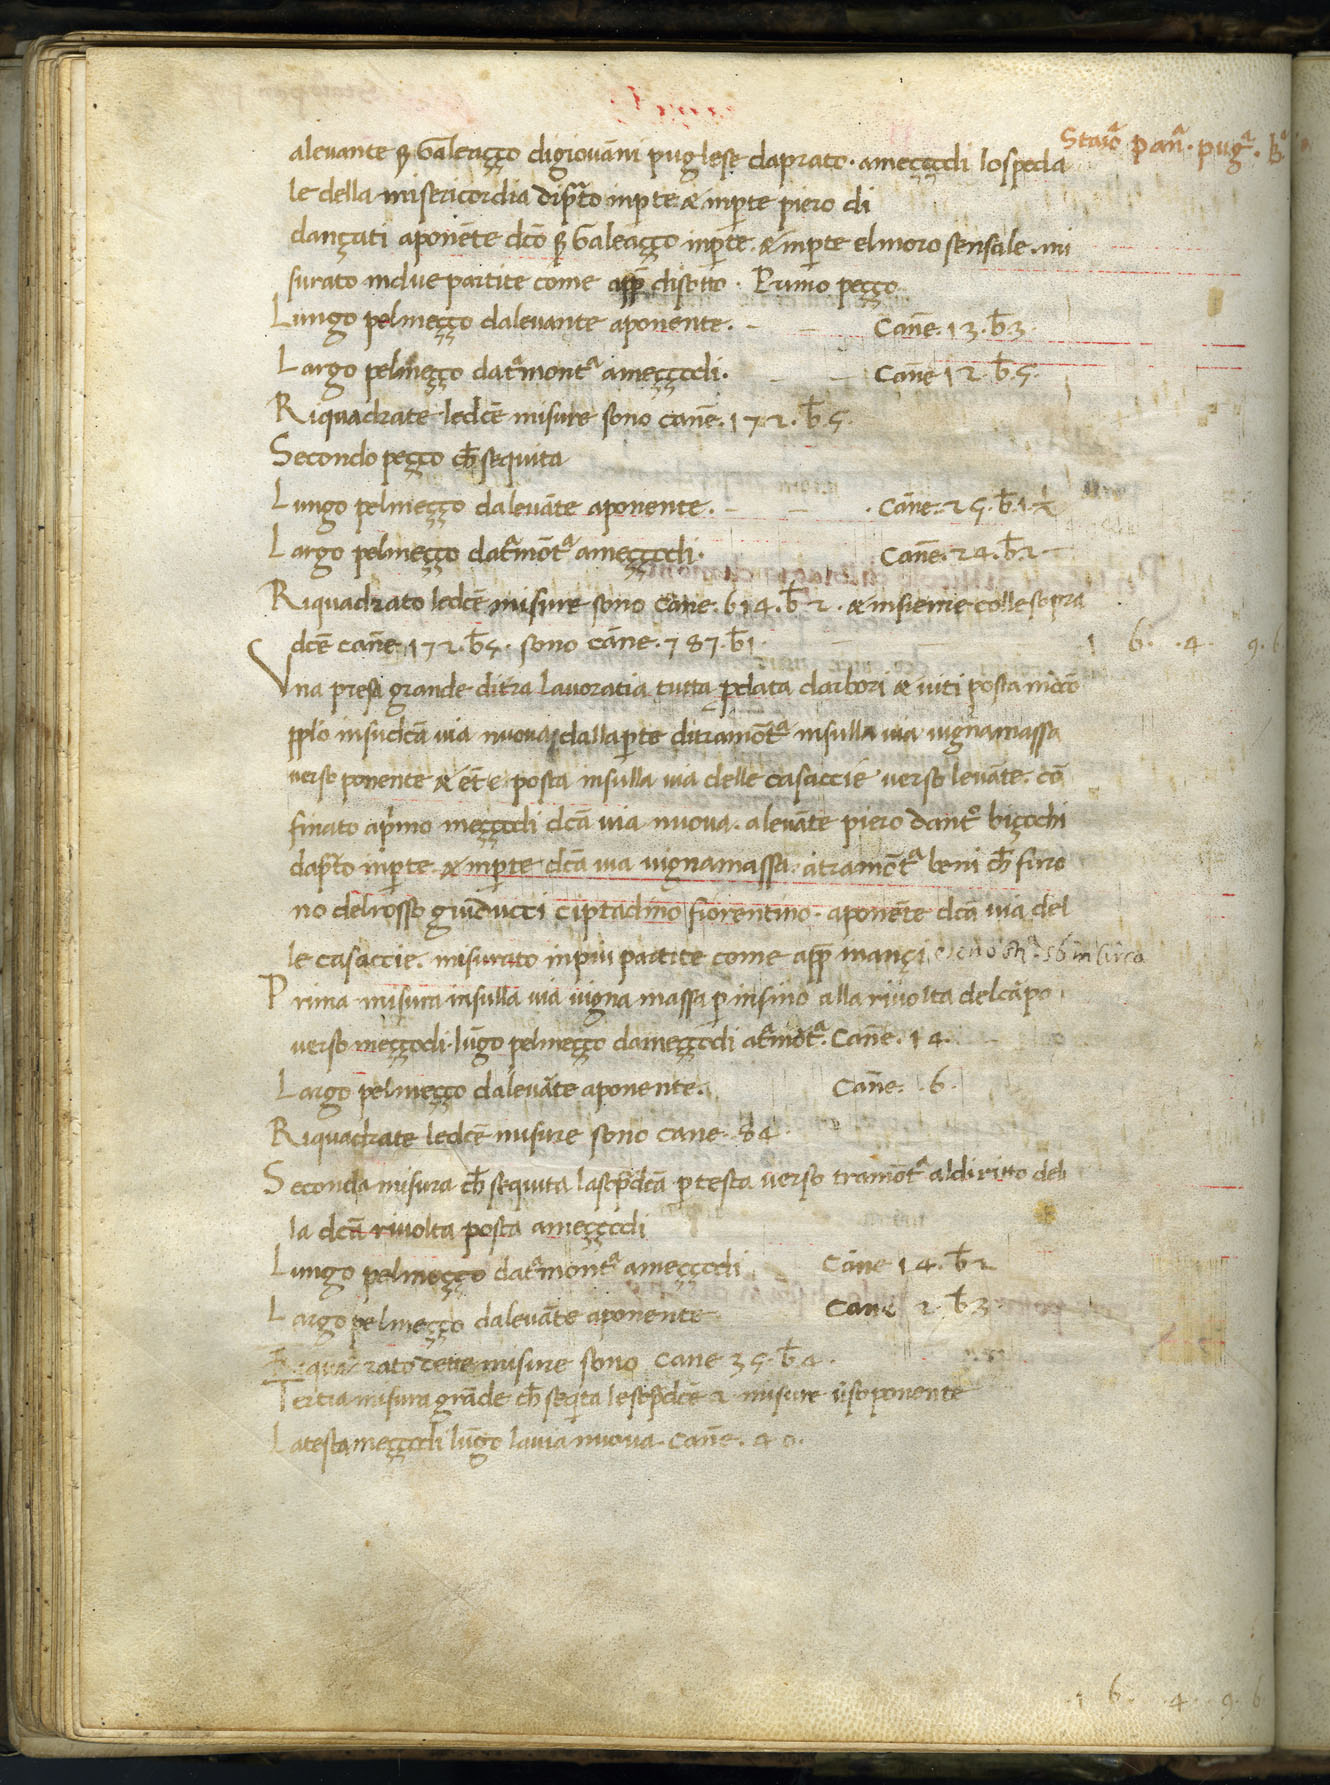 Staiᵃ panᵃ · pugᵃ · bᵃ
alevante ser Galeaçço digiovāni puglese daprato · ameççodi lospeda
le della misericordia dip̄to inp̄te & inp̄te piero di
dançati aponēte dc̄o ser Galeaçço inp̄te · & inp̄te elmoro sensale · mi
surato indue partite come app̄ disotto · Primo peçço
Lungo pelmeçço dalevante aponente · Cañe · 13 · b̄ 3 ·
Largo pelmeçço dat̄montᵃ ameççodi · Cañe 12 · b̄ 5 ·
Riquadrate ledcē misure sono cañe · 172 · b̄ 5 ·
Secondo peçço ch̄ sequita
Lungo pelmeçço dalevāte aponente · Cāne · 25 · b̄ 1 ½
Largo pelmeçço dat̄mōtᵃ ameççodi · Cañe · 24 · b̄ 2 ·
Riquadrato ledcē misure sono cāne · 614 · b̄ 2 · & insieme colle sopra
dcē cañe 172 · b̄ 5 · sono cāne · 787 · b̄ 1 · 1 6 · 4 · 9 · 6
Vna presa grande ditr̄a lavoratia tutta p̄elata darbori & viti posta indc̄o
pplo insudcā via nuova dallap̄te ditramōtᵃ insulla via vignamassa
verso ponente & ēt e posta insulla via delle casaccie verso levāte · cō
finato ap̄imo meççodi dcā via nuova · alevāte piero dantᵒ biçochi
dap̄to inp̄te · & inp̄te dcā via vignamassa · atramōtᵃ beni ch̄ furo
no delrosso giuducci ciptadino fiorentino · aponēte dcā via del
le casaccie · misurato inpiu partite come app̄ inançi
Prima misura insulla via vigna massa p̄ insino alla rivolta delcāpo
verso meççodi · lūgo pelmeçço dameççodi at̄mōtᵃ · Cañe · 14 ·
Largo pelmeçço dalevāte aponente · Cañe · 6 ·
Riquadrate ledcē misure sono cane · 84 ·
Seconda misura ch̄ sequita lasop̄dcā p̄ testa verso tramōtᵃ aldiritto del
la dcā rivolta posta ameççodi
Lungo pelmeçço dat̄montᵃ ameççodi Cāne 14 · b̄ 2
Largo pelmeçço dalevāte aponente Cane 2 · b̄ 3 ·
Riquadrato dette misure sono cane 35 · b̄ 4 ·
Tertia misura grāde ch̄ seq̄ta lesop̄dcē 2 misure v̄so ponente
Latesta meççodi lūgo lavia nuova · cañe · 40 ·
· 1 6 · · 4 · · 9 · 6